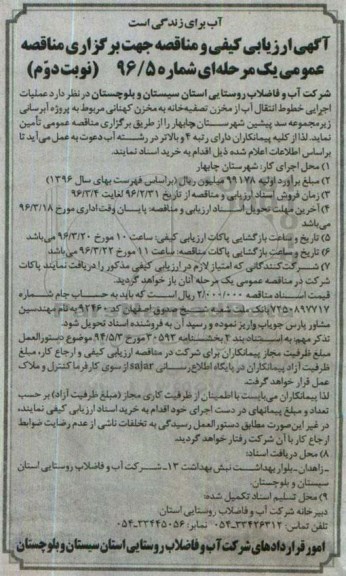 آب برای زندگی است
آگهی ارزیابی کیفی و مناقصه جهت برگزاری مناقصه
عمومی یک مرحله‌ای شماره ۹۶/۵ (نوبت دوّم)
شرکت آب و فاضلاب روستایی استان سیستان و بلوچستان در نظر دارد عملیات
اجرایی خطوط انتقال آب از مخزن تصفیه‌خانه به مخزن کهنانی مربوط به پروژه آبرسانی
زیرمجموعه سد پیشین شهرستان چابهار را از طریق برگزاری مناقصه عمومی تأمین
نماید. لذا از کلیه پیمانکاران دارای رتبه ۴ و بالاتر در رشته آب دعوت به عمل می‌آید تا
براساس اطلاعات اعلام شده ذیل اقدام به خرید اسناد نمایند.
۱) محل اجرای کار: شهرستان چابهار
۲) مبلغ برآورد اولیه: ۹۹۱۷۸ میلیون ریال (براساس فهرست بهای سال ۱۳۹۶)
۳) زمان فروش اسناد ارزیابی و مناقصه از تاریخ ۹۶/۲/۳۱ لغایت ۹۶/۳/۴
۴) آخرین مهلت تحویل اسناد ارزیابی و مناقصه: پایان وقت اداری مورخ ۹۶/۳/۱۸
می‌باشد
۵) تاریخ و ساعت بازگشایی پاکات ارزیابی کیفی: ساعت ۱۰ مورخ ۹۶/۳/۲۰ می‌باشد
۶) تاریخ و ساعت بازگشایی پاکات مناقصه: ساعت ۱۱ مورخ ۹۶/۳/۲۲ می‌باشد
۷) شرکت‌کنندگانی که امتیاز لازم در ارزیابی کیفی مذکور را دریافت نمایند پاکات
شرکت در مناقصه عمومی یک مرحله آنان باز خواهد گردید.
قیمت اسناد مناقصه ۲/۰۰۰/۰۰۰ ریال است که باید به حساب جام شماره
۷۲۵۰۸۹۷۷۱۷ بانک ملت شعبه شیخ صدوق اصفهان کد ۹۲۴۶۰ به نام مهندسین
مشاور پارس جویاب واریز نموده و رسید آن به فروشنده اسناد تحویل شود.
تذکر مهم: به استناد بند ۳ بخشنامه ۳۰۵۹۲ مورخ ۹۴/۵/۳ موضوع دستورالعمل
مبلغ ظرفیت مجاز پیمانکاران برای شرکت در مناقصه ارزیابی کیفی و ارجاع کار، مبلغ
ظرفیت آزاد پیمانکاران در پایگاه اطلاع‌رسانی sajar از سوی کارفرما کنترل و ملاک
عمل قرار خواهد گرفت.
لذا پیمانکاران می‌بایست با اطمینان از ظرفیت کاری مجاز (مبلغ ظرفیت آزاد) بر حسب
تعداد و مبلغ پیمانهای در دست اجرای خود اقدام به خرید اسناد ارزیابی کیفی نمایند،
در غیر این صورت مطابق دستورالعمل رسیدگی به تخلفات ناشی از عدم رضایت ضوابط
ارجاع کار با آن شرکت رفتار خواهد گردید.
۸) محل دریافت اسناد:
-زاهدان- بلوار بهداشت نبش بهداشت ۱۳- شرکت آب و فاضلاب روستایی استان
سیستان و بلوچستان.
۹) محل تسلیم اسناد تکمیل شده:
دبیرخانه شرکت آب و فاضلاب روستایی استان
تلفن تماس: ۳۳۴۲۶۳۱۲-۰۵۴ نمابر: ۳۳۴۴۵۰۵۶-۰۵۴
امور قراردادهای شرکت آب و فاضلاب روستایی استان سیستان و بلوچستان